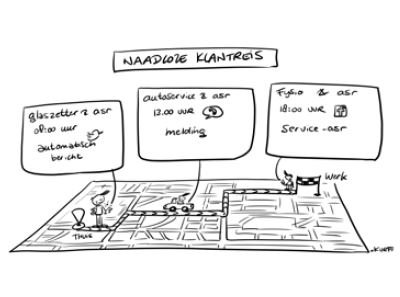 NAADLOZE KLANTREIS
glaszetter & asr
08:00 uur
automatisch
bericht
autoservice & asr
13.00 uur
melding
Fysio & asr
18:00 uur
Service-asr
Werk
Thuis